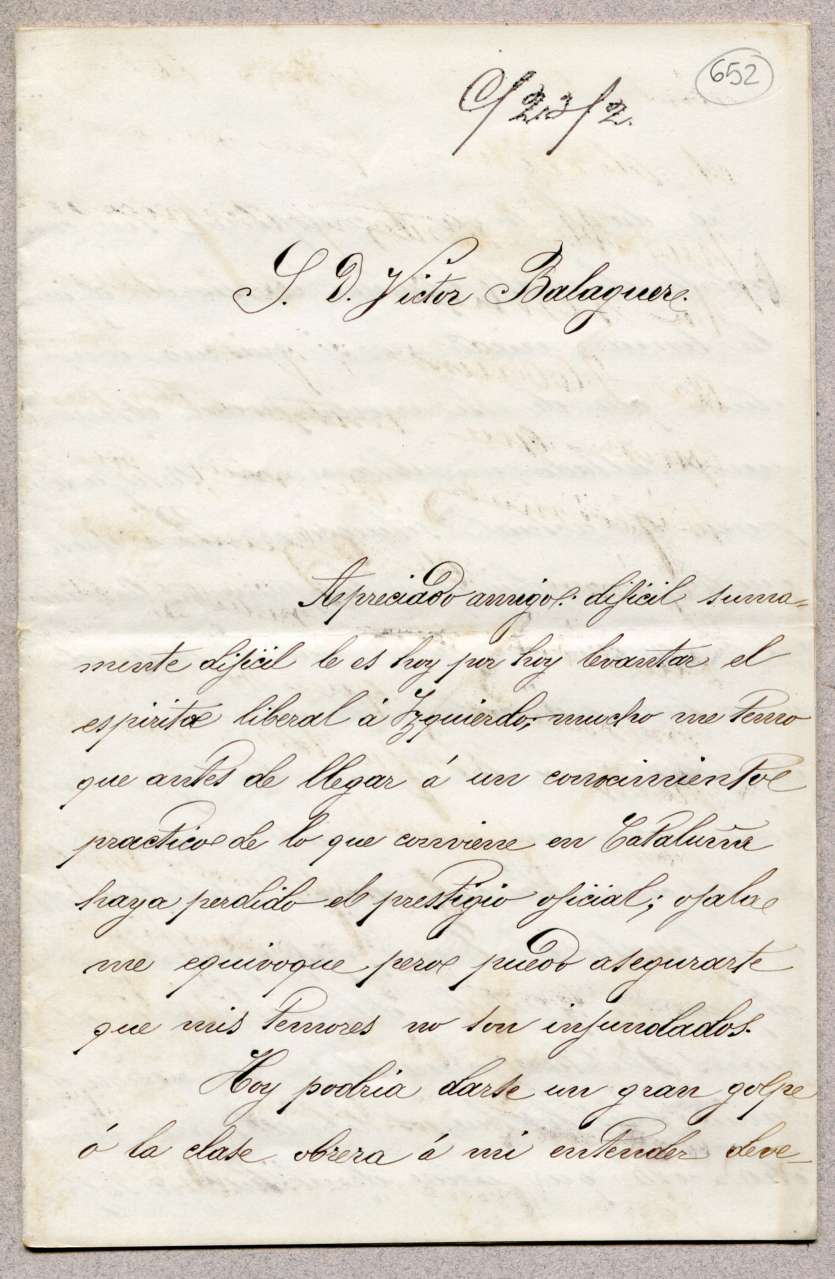 652
C/23/2.
S. D. Victor Balaguer.
Apreciado amigo: dificil suma-
mente dificil le es hoy por hoy levantar el
espirito liberal á Izquierdo; mucho me temo
que antes de llegar á un conocimiento
practico de lo que conviene en Cataluña
haya perdido el prestigio oficial; ojala
me equivoque pero puedo asegurarte
que mis temores no son infundados.
Hoy podria darse un gran golpe
á la clase obrera á mi entender deve-